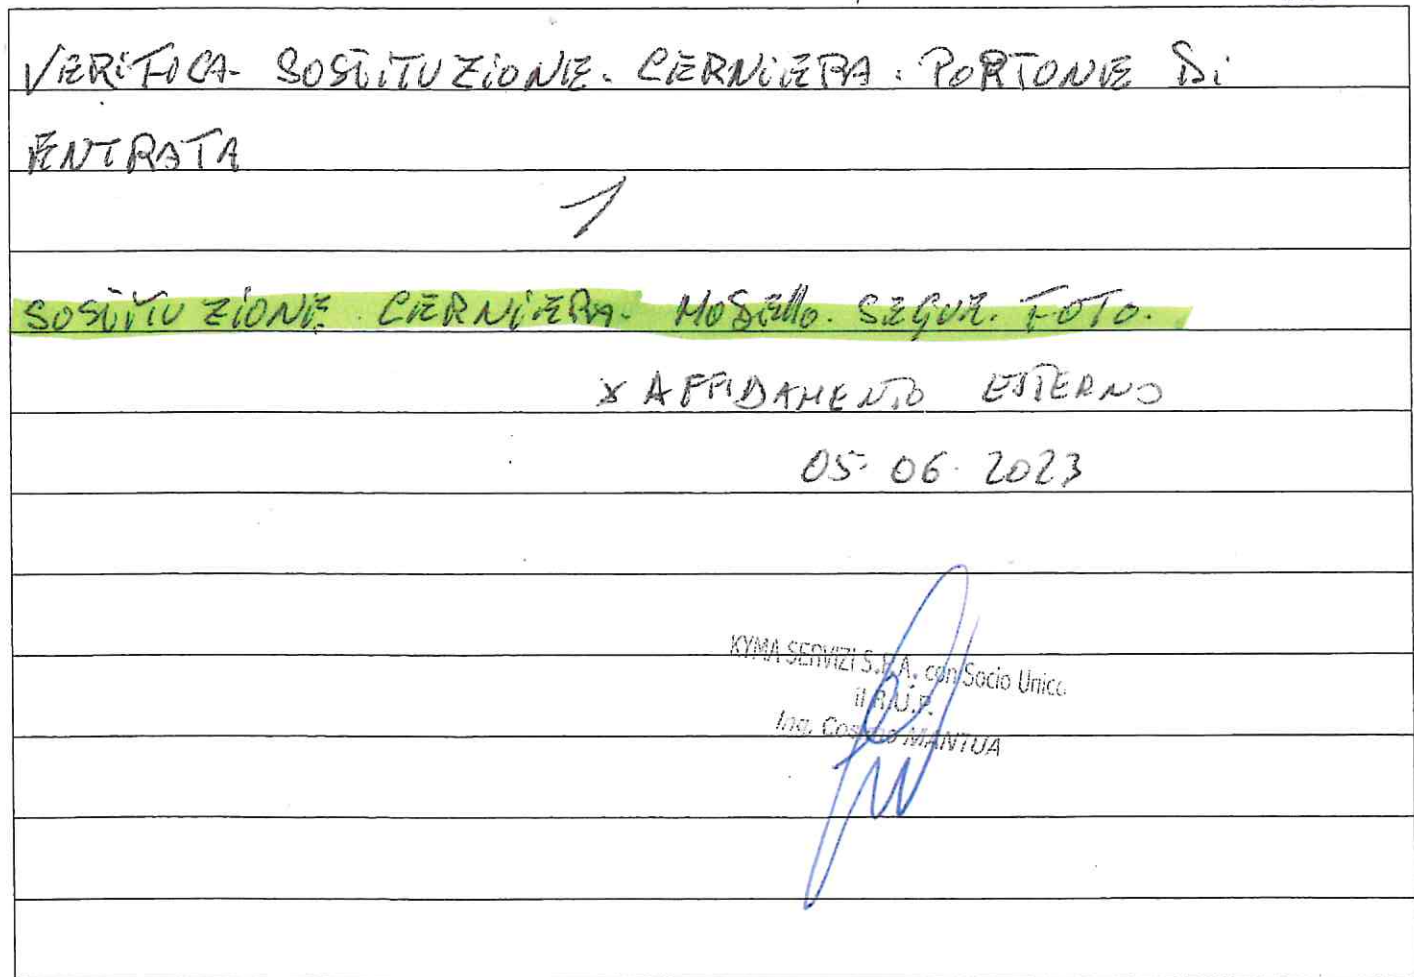 VERIFICA SOSTITUZIONE. CERNIERA. PORTONE Di
ENTRATA
1
SOSTITUZIONE CERNIERA. MODELLO. SEGUE. FOTO.
X AFFIDAMENTO ESTERNO
05-06-2023
KYMA SERVIZI S.P.A. con Socio Unico
il R.U.P.
Ing. Cosimo MANTUA